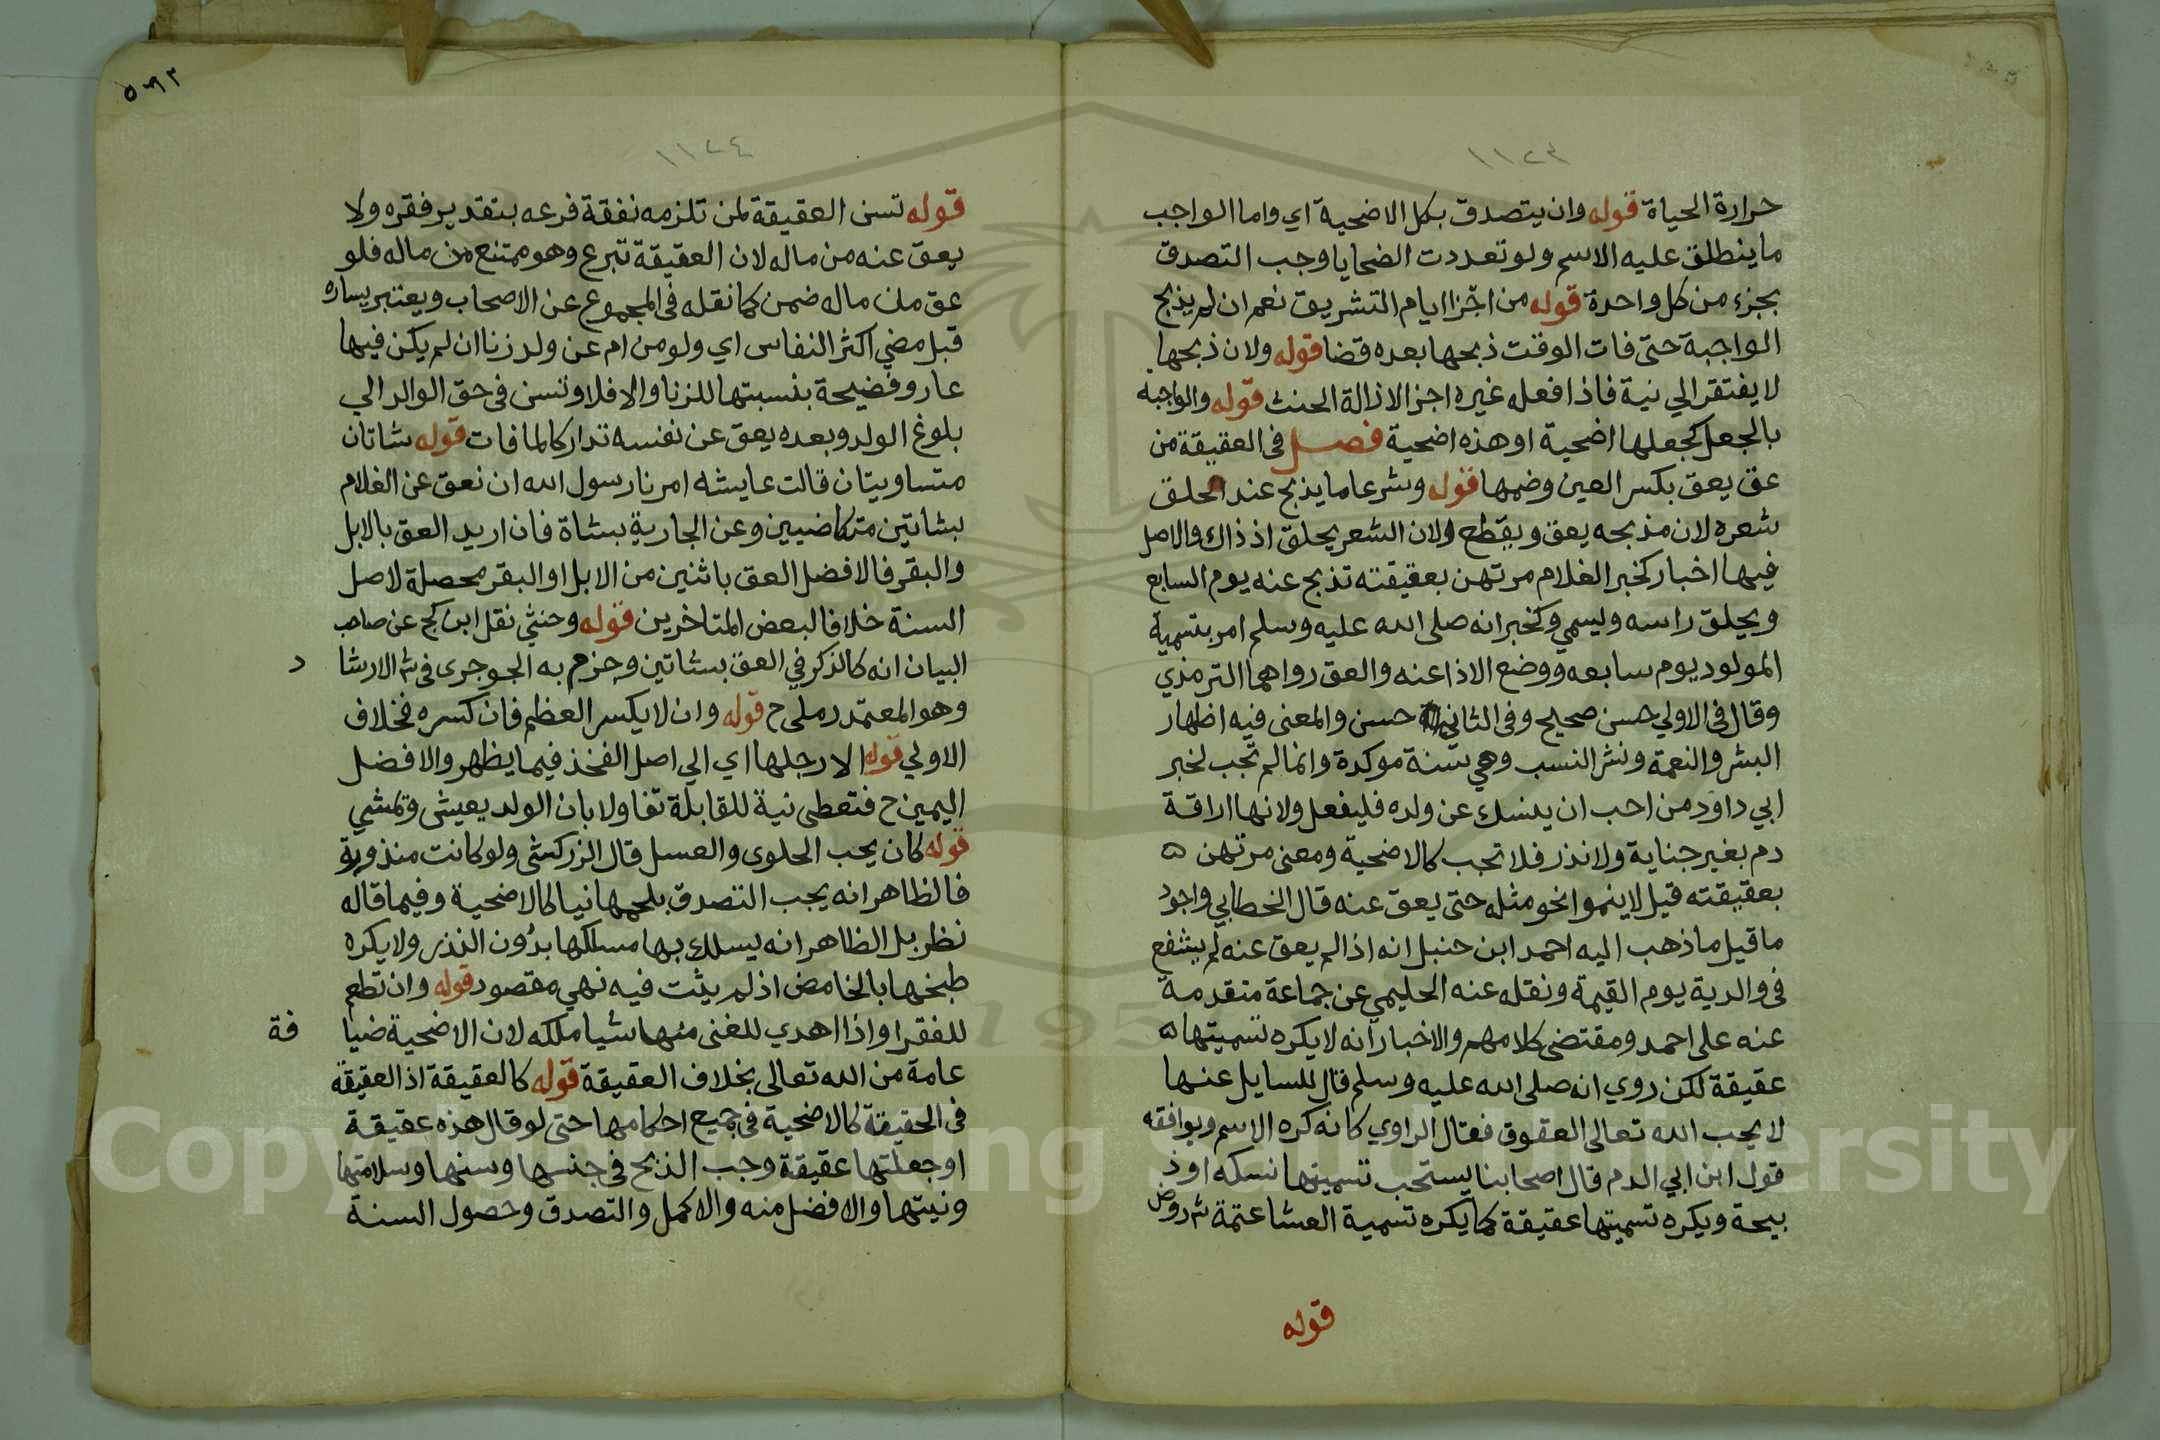 ١١٢٣
حرارة الحياة قوله وان يتصدق بكل الاضحية اي واما الواجب
ما ينطلق عليه الاسم ولو تعددت الضحايا وجب التصدق
بجزء من كل واحدة قوله من اخر ايام التشريق نعم ان لم يذبح
الواجبة حتى فات الوقت ذبحها بعده قضا قوله ولان ذبحها
لا يفتقر الي نية فاذا فعله غيره اجزا لازالة الحنث قوله والواجبه
بالجعل كجعلها اضحية او هذه اضحية فصل في العقيقة من
عق يعق بكسر العين وضمها قوله وشرعا ما يذبح عند حلق
شعره لان مذبحه يعق ويقطع ولان الشعر يحلق اذ ذاك والاصل
فيها اخبار كخبر الغلام مرتهن بعقيقته تذبح عنه يوم السابع
ويحلق راسه ويسمي وكخبر انه صلى الله عليه وسلم امر بتسمية
المولود يوم سابعه ووضع الاذا عنه والعق رواهما الترمذي
وقال في الاولي حسن صحيح وفي الثانية حسن والمعنى فيه اظهار
البشر والنعمة ونشر النسب وهي سنة موكدة وانما لم تجب لخبر
ابي داود من احب ان ينسك عن ولده فليفعل ولانها اراقة
دم بغير جناية ولا نذر فلا تجب كالاضحية ومعنى مرتهن ه
بعقيقته قيل لا ينموا نحو مثله حتى يعق عنه قال الخطابي واجود
ما قيل ما ذهب اليه احمد ابن حنبل انه اذا لم يعق عنه لم يشفع
في والدية يوم القيمة ونقله عنه الحليمي عن جماعة متقدمة
عنه على احمد ومقتضى كلامهم والاخبار انه لا يكره تسميتها ه
عقيقة لكن روي انه صلى الله عليه وسلم قال للسايل عنها
لا يحب الله تعالى العقوق فقال الراوي كانه كره الاسم ويوافقه
قول ابن ابي الدم قال اصحابنا يستحب تسميتها نسكه او ذ
بيحة ويكره تسميتها عقيقة كما يكره تسمية العشا عتمة شر روض
قوله
٥٩٣
١١٢٤
قوله تسن العقيقة لمن تلزمه نفقة فرعه بتقدير فقره ولا
يعق عنه من ماله لان العقيقة تبرع وهو ممتنع من ماله فلو
عق من ماله ضمن كما نقله في المجموع عن الاصحاب ويعتبر يساره
قبل مضي اكثر النفاس اي ولو من ام عن ولد زنا ان لم يكن فيها
عار وفضيحة بنسبتها للزنا والا فلا وتسن في حق الوالد الي
بلوغ الولد وبعده يعق عن نفسه تداركا لما فات قوله شاتان
متساويتان قالت عايشه امرنا رسول الله ان نعق عن الغلام
بشاتين متكاضيين وعن الجارية بشاة فان اريد العق بالابل
والبقر فالافضل العق باثنين من الابل او البقر محصلة لاصل
السنة خلافا لبعض المتاخرين قوله وخنثي نقل ابن كج عن صاحب
البيان انه كالذكر في العق بشاتين وجزم به الجوجرى في شر الارشا
د
وهو المعتمد رملي ح قوله وان لا يكسر العظم فان كسره فخلاف
الاولي قوله الا رجلها اي الي اصل الفخذ فيما يظهر والافضل
اليمين ح فتعطى نية للقابلة تفاولا بان الولد يعيش وتمشي
قوله كان يحب الحلوى والعسل قال الزركشي ولو كانت منذورة
فالظاهر انه يجب التصدق بلحمها نيا كالاضحية وفيما قاله
نظر بل الظاهر انه يسلك بها مسلكها بدون النذر ولا يكره
طبخها بالخامض اذ لم يثبت فيه نهي مقصود قوله وان تطعم
للفقرا واذا اهدي للغنى منها شيا ملكه لان الاضحية ضيا
فة
عامة من الله تعالى بخلاف العقيقة قوله كالعقيقة اذ العقيقة
في الحقيقة كالاضحية في جميع احكامها حتى لو قال هذه عقيقة
او جعلتها عقيقة وجب الذبح في جنسها وسنها وسلامتها
ونيتها والافضل منه والاكمل والتصدق وحصول السنة
1957
Copyright © King Saud University